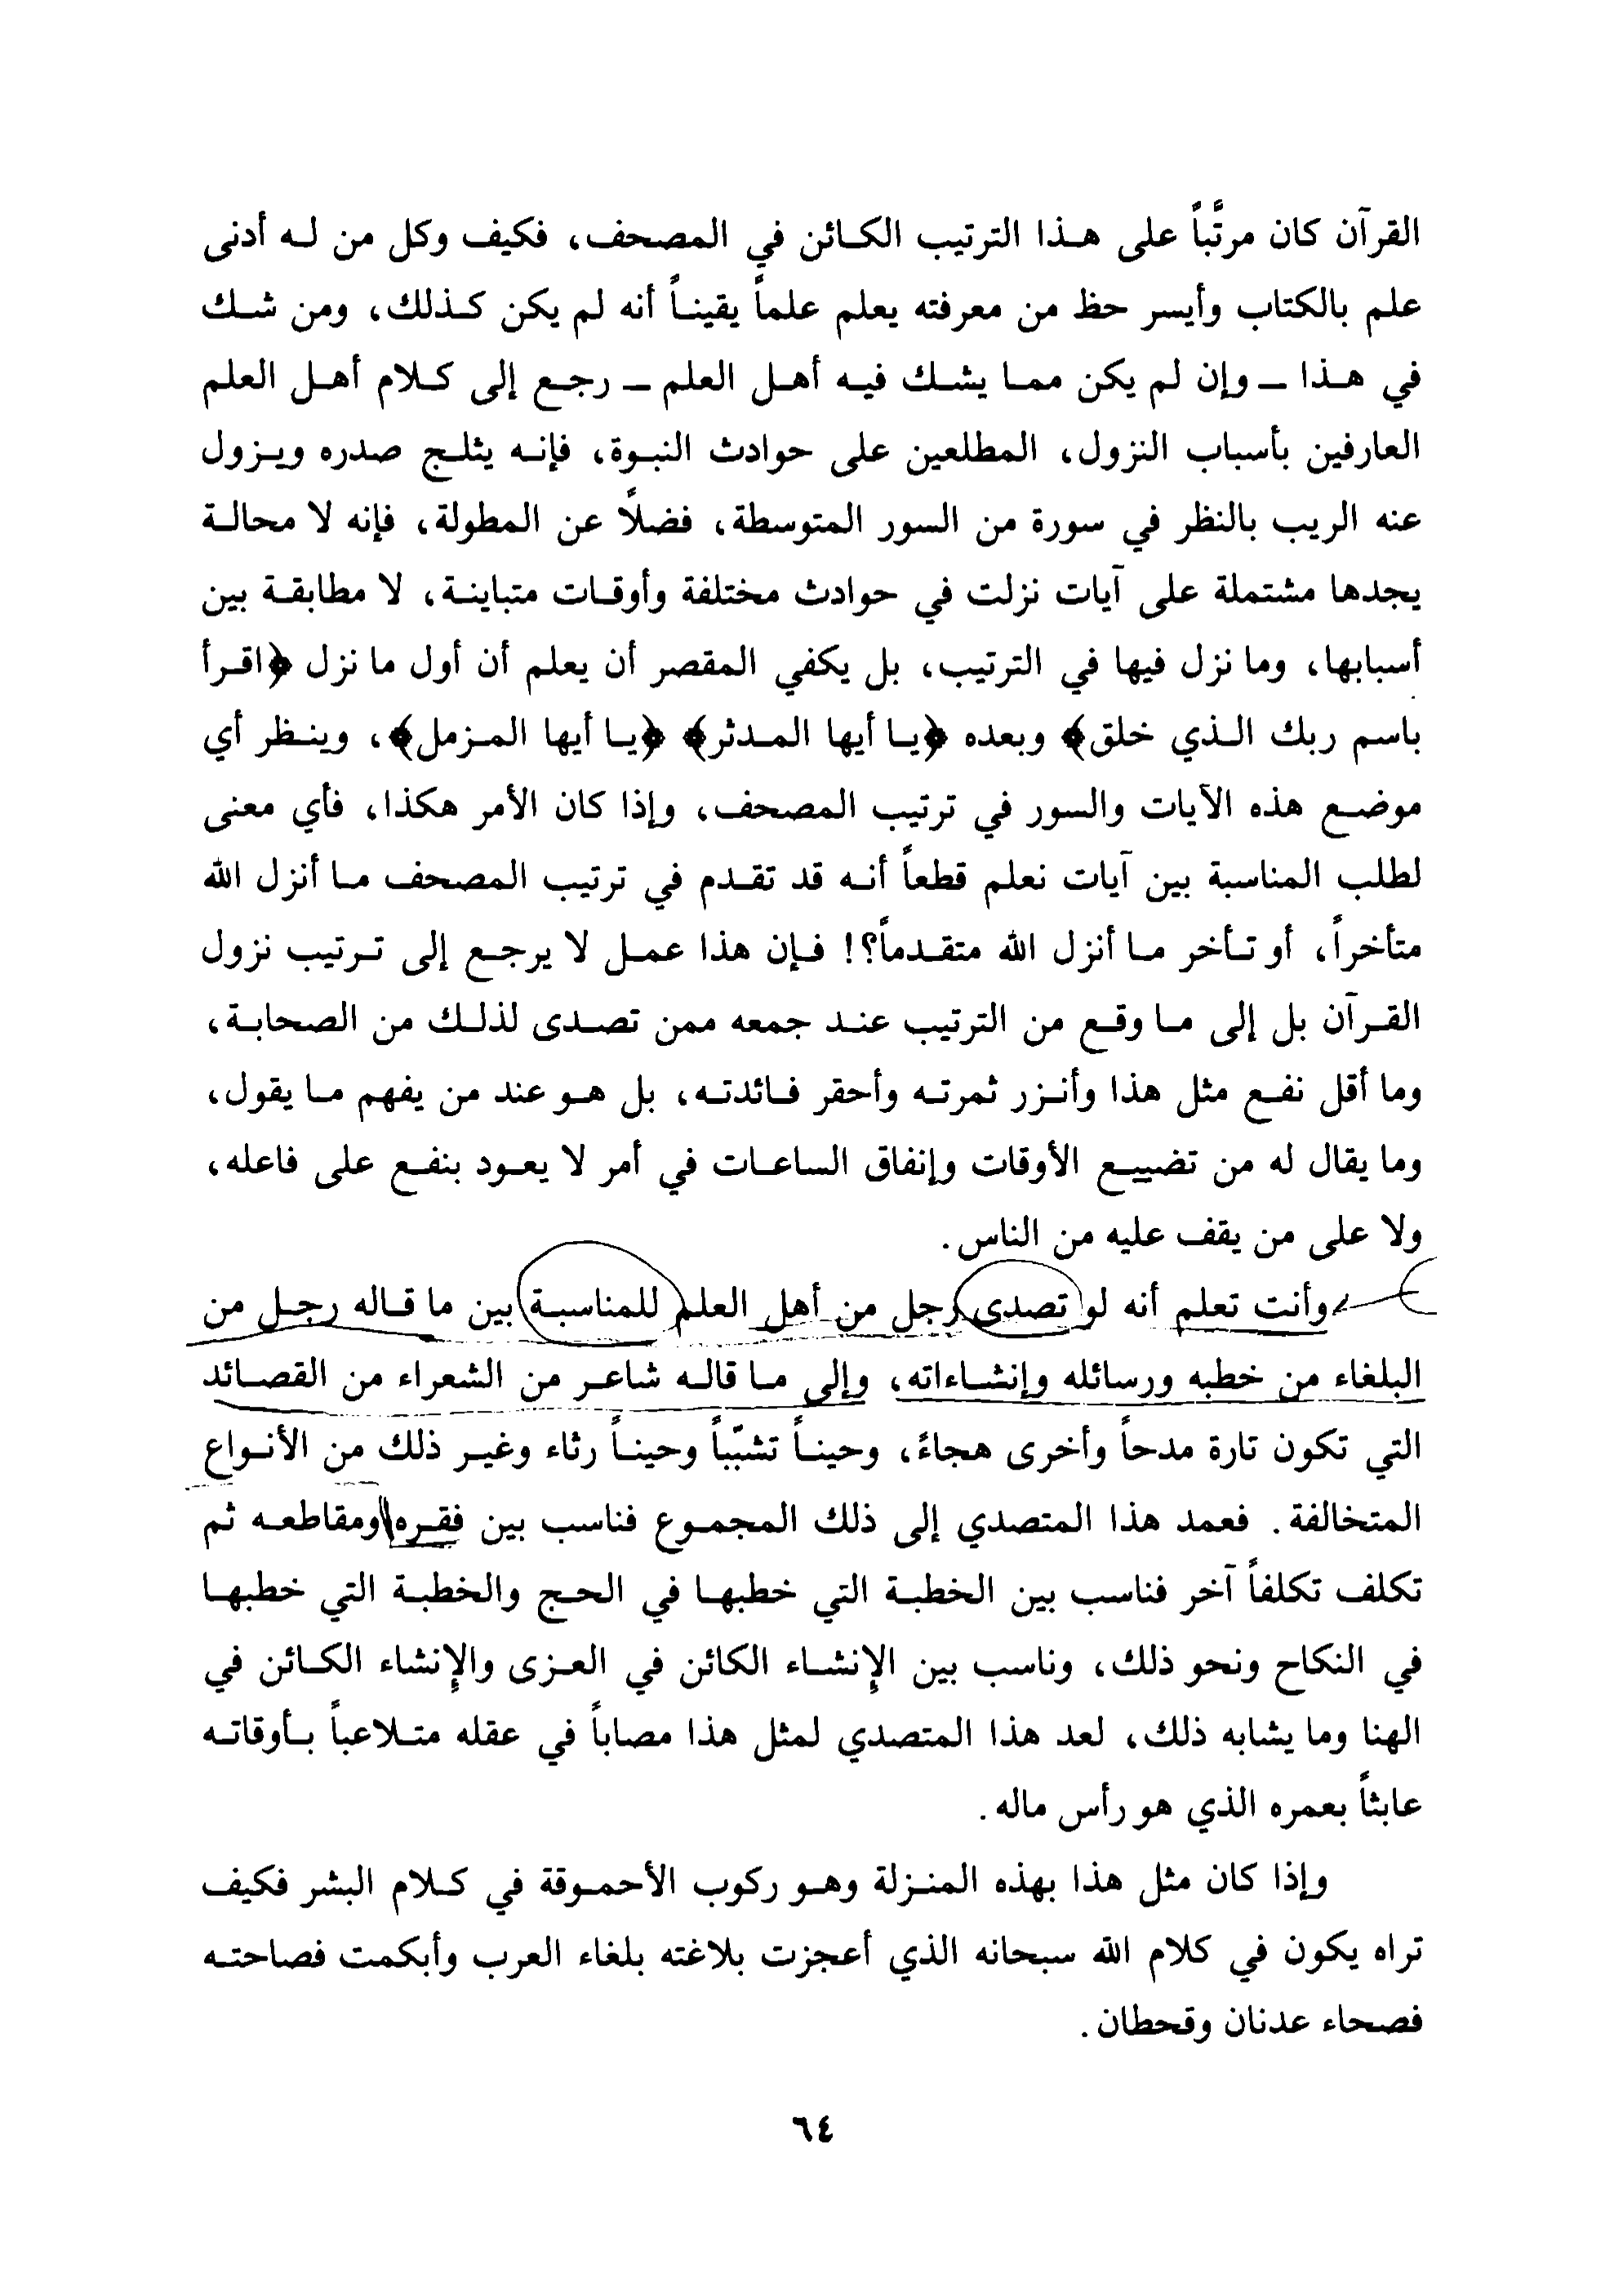 القرآن كان مرتَّباً على هذا الترتيب الكائن في المصحف، فكيف وكل من له أدنى
علم بالكتاب وأيسر حظ من معرفته يعلم علماً يقيناً أنه لم يكن كذلك، ومن شك
في هذا – وإن لم يكن مما يشك فيه أهل العلم – رجع إلى كلام أهل العلم
العارفين بأسباب النزول، المطلعين على حوادث النبوة، فإنه يثلج صدره ويزول
عنه الريب بالنظر في سورة من السور المتوسطة، فضلاً عن المطولة، فإنه لا محالة
يجدها مشتملة على آيات نزلت في حوادث مختلفة وأوقات متباينة، لا مطابقة بين
أسبابها، وما نزل فيها في الترتيب، بل يكفي المقصر أن يعلم أن أول ما نزل ﴿اقرأ
باسم ربك الذي خلق﴾ وبعده ﴿يا أيها المدثر﴾ ﴿يا أيها المزمل﴾، وينظر أي
موضع هذه الآيات والسور في ترتيب المصحف، وإذا كان الأمر هكذا، فأي معنى
لطلب المناسبة بين آيات نعلم قطعاً أنه قد تقدم في ترتيب المصحف ما أنزل الله
متأخراً، أو تأخر ما أنزل الله متقدماً؟! فإن هذا عمل لا يرجع إلى ترتيب نزول
القرآن بل إلى ما وقع من الترتيب عند جمعه ممن تصدى لذلك من الصحابة،
وما أقل نفع مثل هذا وأنزر ثمرته وأحقر فائدته، بل هو عند من يفهم ما يقول،
وما يقال له من تضييع الأوقات وإنفاق الساعات في أمر لا يعود بنفع على فاعله،
ولا على من يقف عليه من الناس.
وأنت تعلم أنه لو تصدى رجل من أهل العلم للمناسبة بين ما قاله رجل من
البلغاء من خطبه ورسائله وإنشاءاته، وإلى ما قاله شاعر من الشعراء من القصائد
التي تكون تارة مدحاً وأخرى هجاءً، وحيناً تشبّباً وحيناً رثاء وغير ذلك من الأنواع
المتخالفة. فعمد هذا المتصدي إلى ذلك المجموع فناسب بين فقره ومقاطعه ثم
تكلف تكلفاً آخر فناسب بين الخطبة التي خطبها في الحج والخطبة التي خطبها
في النكاح ونحو ذلك، وناسب بين الإنشاء الكائن في العزى والإنشاء الكائن في
الهنا وما يشابه ذلك، لعد هذا المتصدي لمثل هذا مصاباً في عقله متلاعباً بأوقاته
عابثاً بعمره الذي هو رأس ماله.
وإذا كان مثل هذا بهذه المنزلة وهو ركوب الأحموقة في كلام البشر فكيف
تراه يكون في كلام الله سبحانه الذي أعجزت بلاغته بلغاء العرب وأبكمت فصاحته
فصحاء عدنان وقحطان.
٦٤